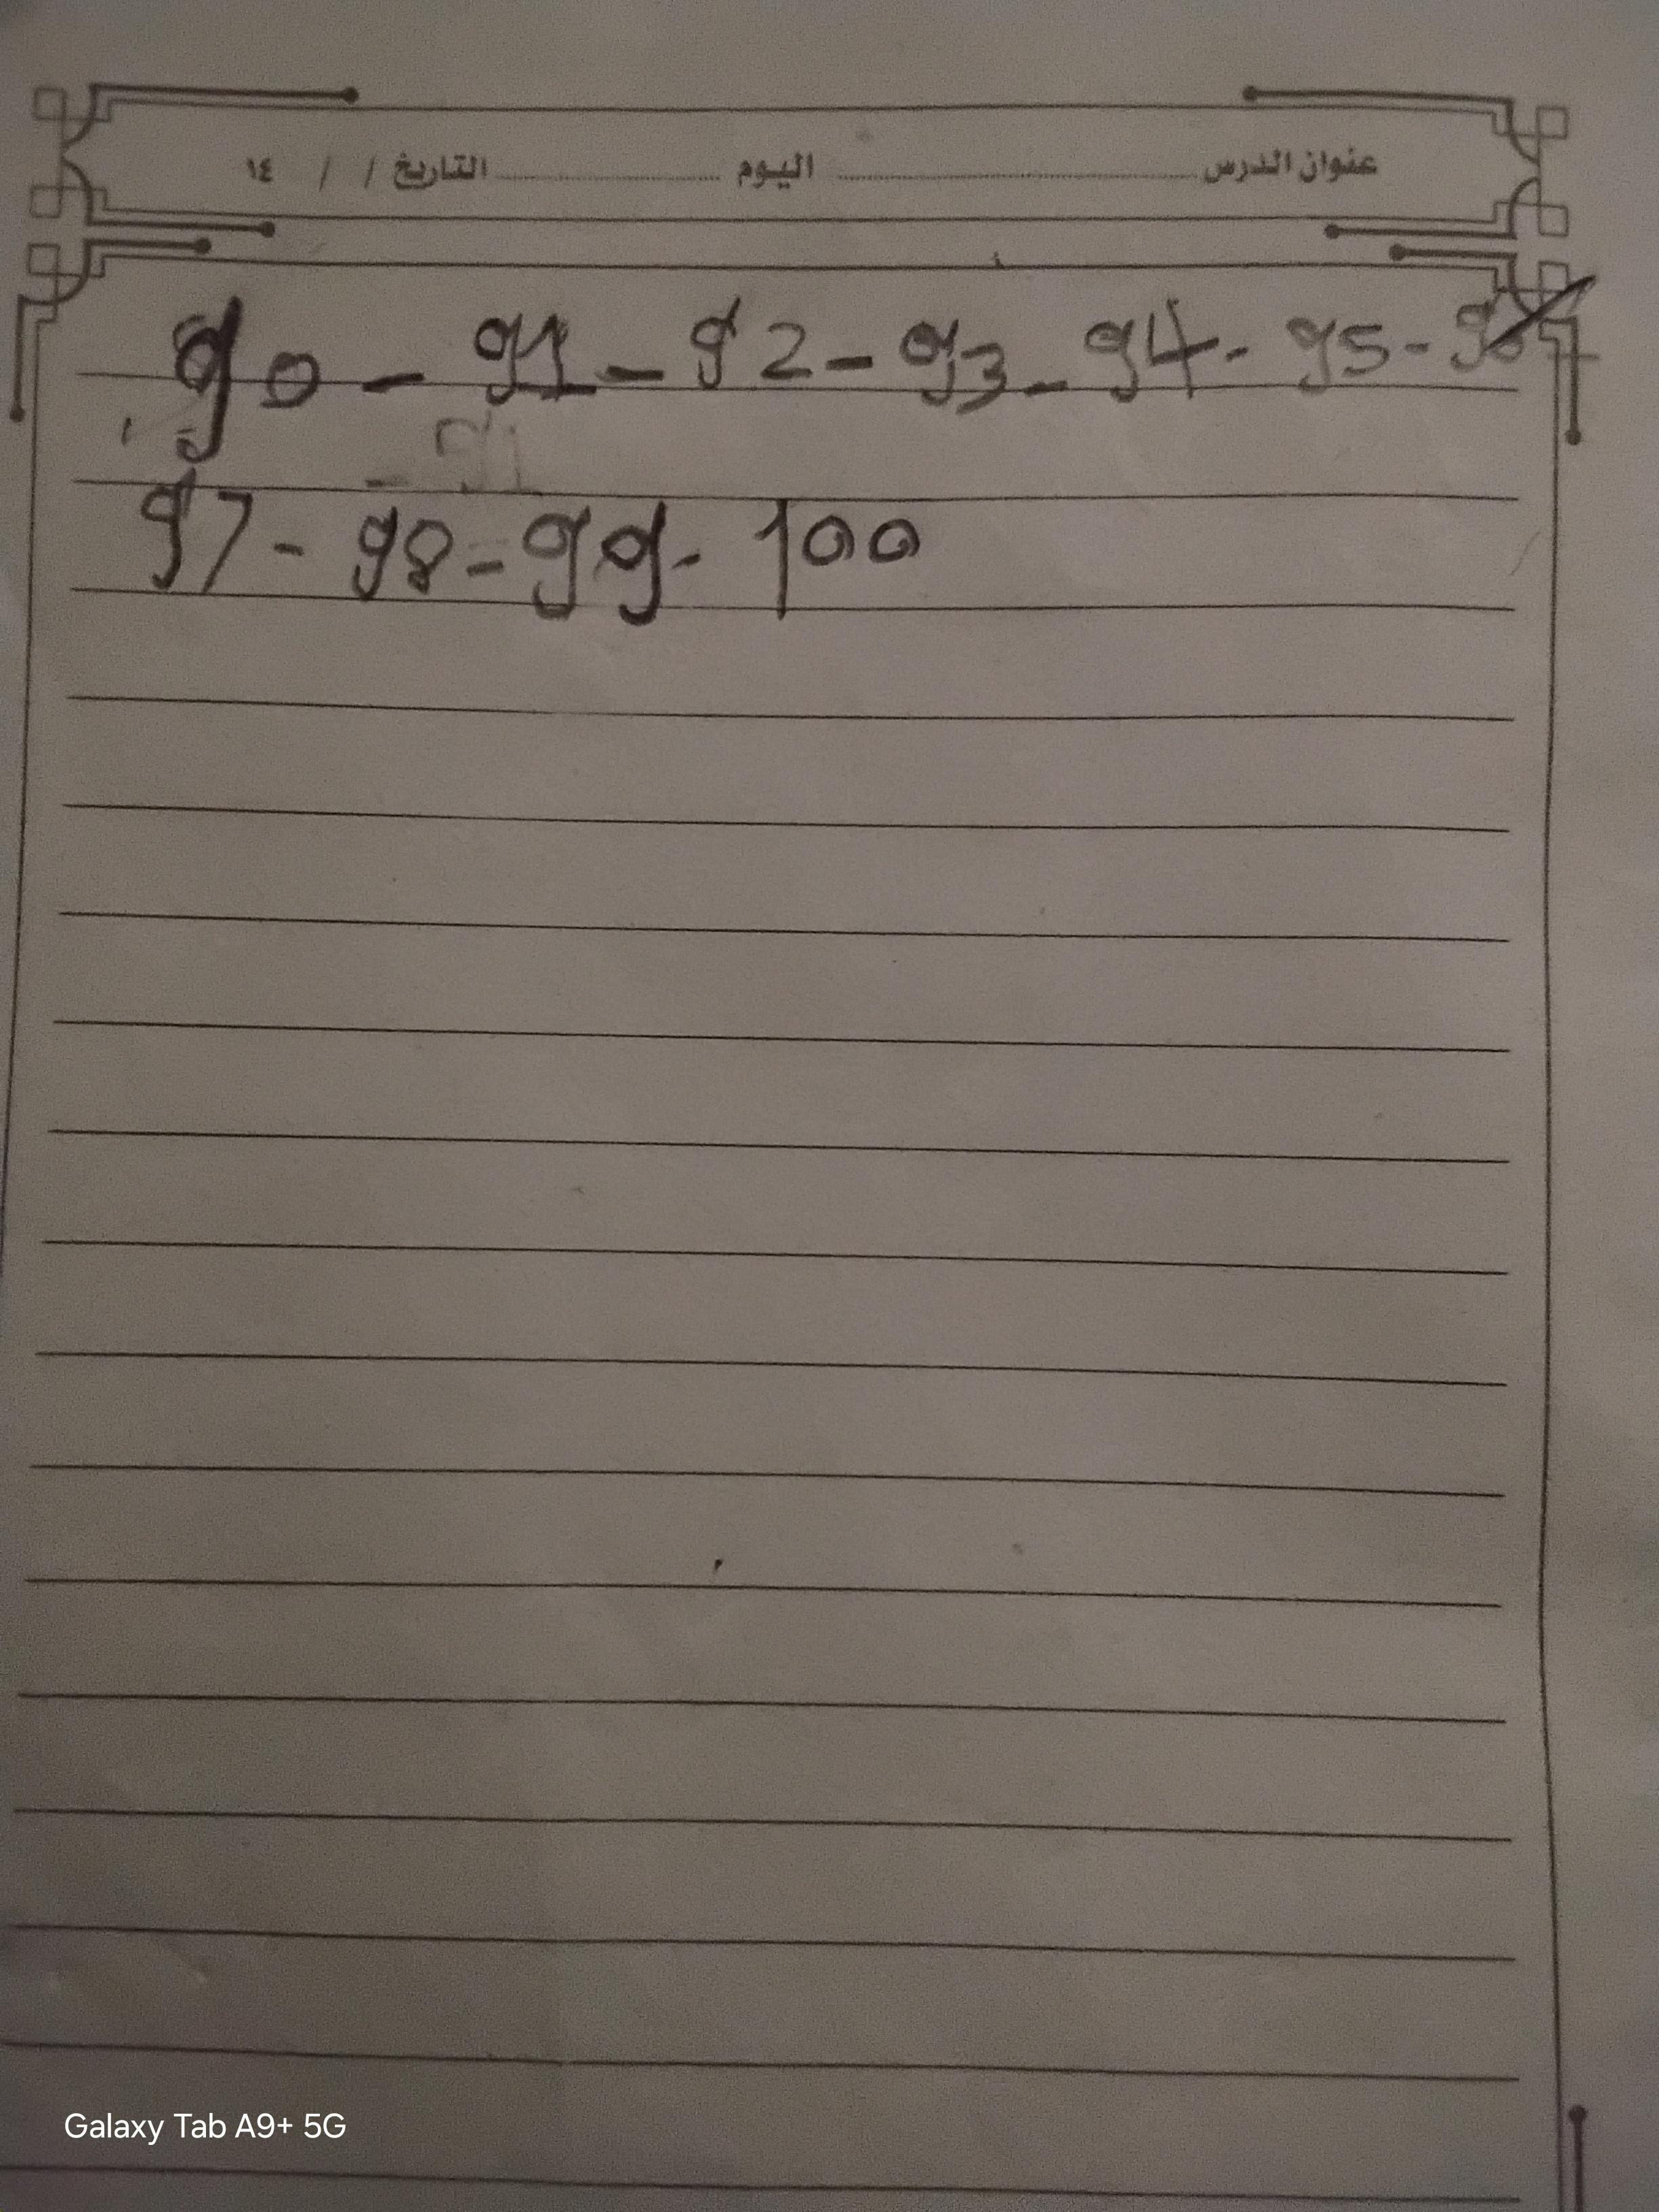 عنوان الدرس ........................ اليوم ................ التاريخ / / ١٤
90 - 91 - 92 - 93 - 94 - 95 - 96
97 - 98 - 99 - 100
Galaxy Tab A9+ 5G